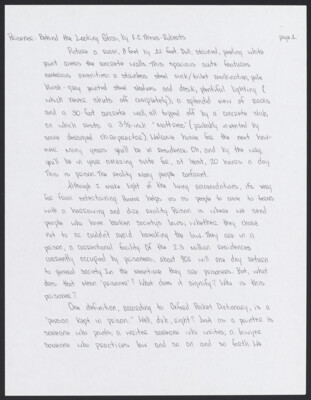 Prisoner: Behind the Looking Glass, by E.C. Theus-Roberts page 1
Picture a room, 8 feet by 12 feet. Dull, stained, peeling white
paint covers the concrete walls. This spacious suite features
numerous amenities: a stainless steel sink/toilet combination, pale
bluish-gray painted steel and desk, plentiful lighting (
which never shuts off completely), a splendid view of rocks
and a 30 foot concrete wall, all topped off by a concrete slab
on which rests a 3½-inch "mattress" (probably invented by
some deranged chiropractor). Welcome home for the next how-
ever many years you'll be in residence. Oh, and by the way
you'll be in your amazing suite for, at least, 20 hours a day.
This is prison. The reality many people
Although I make light of the living accomodations, it's very
far from entertaining. Humor helps us as people to come to terms
with a harrowing and dire reality. Prison is where we send
people who have broken society's laws; whether they chose
not to or couldn't avoid breaking the law. They are in a
prison, a correctional facility. Of the 2.3 million residences
currently occupied by prisoners, about 95% will one day return
to general society. In the meantime they are prisoners. But, what
does that mean "prisoner"? What does it signify? Who is this
prisoner?
One definition, according to Oxford Pocket Dictionary, is a
"person kept in prison." Well, duh, right? Just as a painter is
someone who paints; a writer someone who writes; a lawyer
someone who practices law and so on and so forth. We